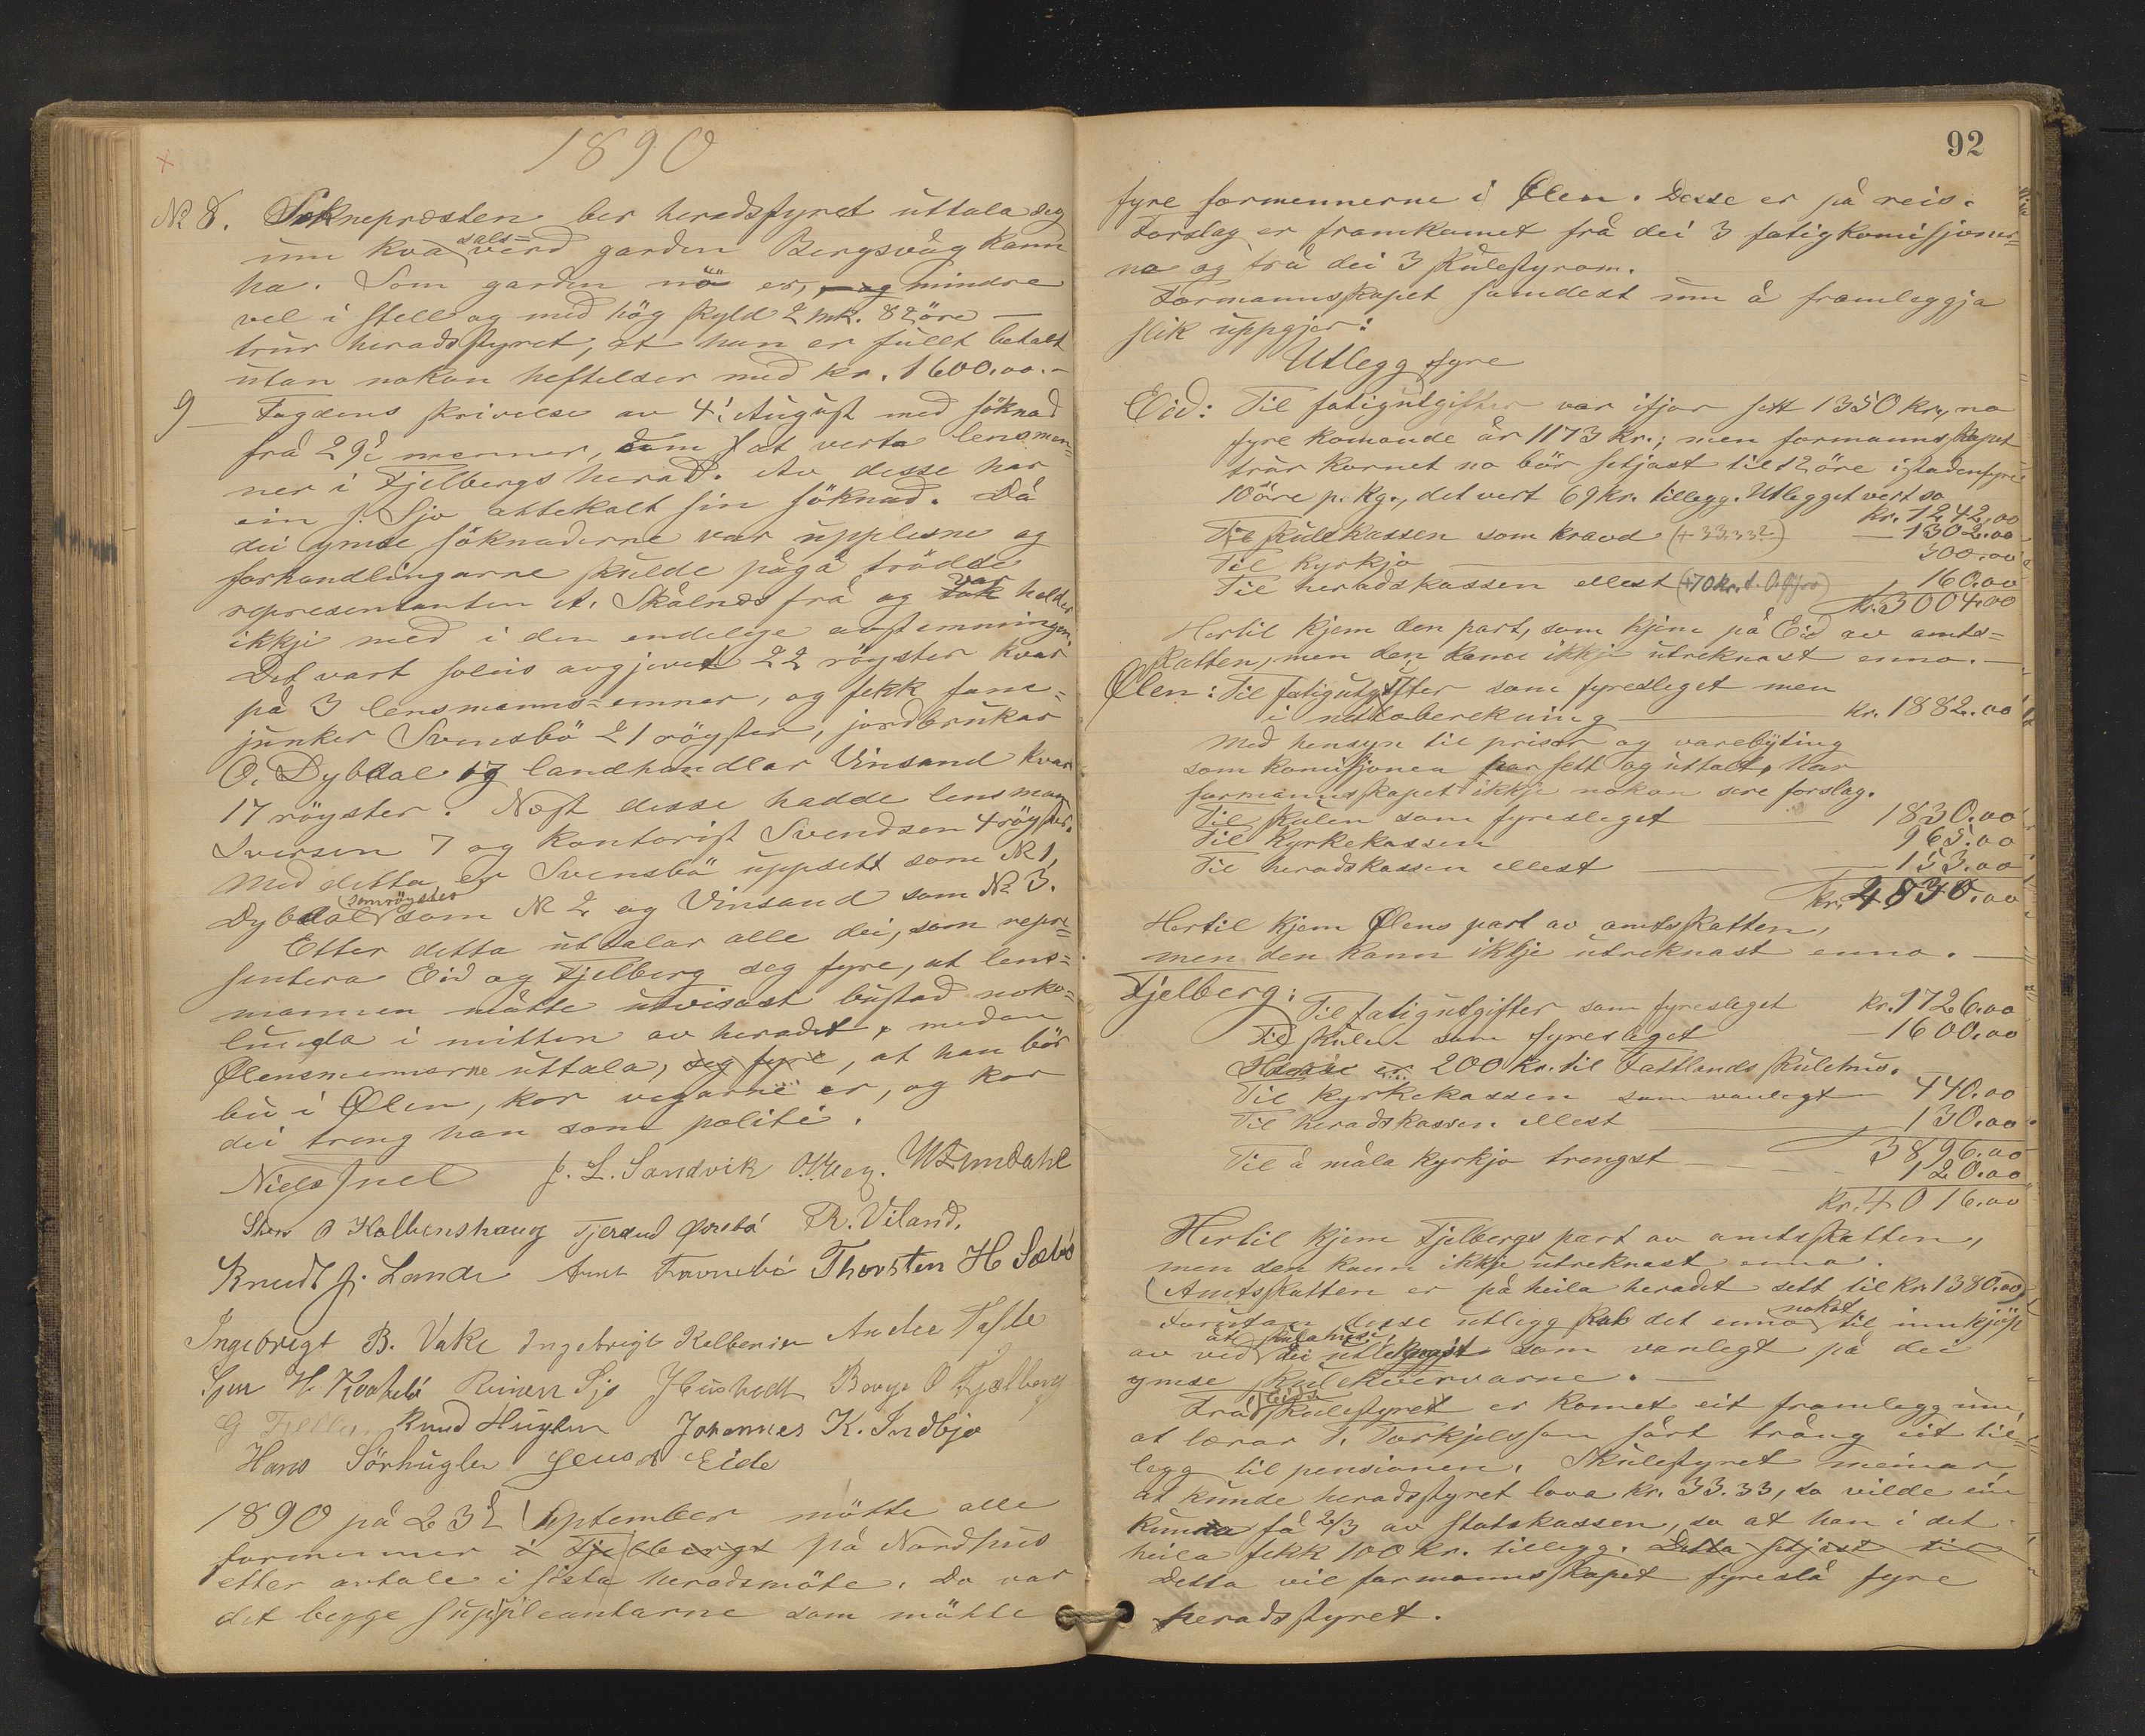 1890
№ 8. Sokneprosten ber heradsstyret uttala seg
um kva sals-verd garden Bergsvåg kann
ha. Som garden nö er, og mindre
vel i stell og med hög skyld 2 mk. 82 öre —
trur heradsstyret, at han er fullt betalt
utan nokon heftelser med kr. 1600.00.-
9 — Fogdens skrivelse av 4: August med söknad
frå 29 menner, um at verta lensmen-
ner i Fjelbergs herad. Av desse har
ein J. Sjo attekalt sin söknad. Då
dei ymse söknaderne var upplesne og
forhandlingarne skulde pågå trödde
representanten A. Skålnes frå og var helder
ikkje med i den endelige avstemningen.
Det vart soleis avgjevet 22 röyster kvar
på 3 lensmanns-emner, og fekk fane-
junker Svensbö 21 röyster, jordbrukar
O. Dybdal og landhandlar Vinsand kvar
17 röyster. Næst desse hadde lensmann
Iversen 7 og kontorist Svendsen 4 röyster.
Med detta er Svensbö uppsett som № 1,
Dybdal (samröystes) som № 2 og Vinsand som № 3.
Etter detta uttalar alle dei, som repre-
sentera Eid og Fjelberg seg fyre, at lens-
mannen måtte utvisast bustad noko-
lunda i mitten av heradet, medan
Ølensmennerne uttala, seg fyre, at han bör
bu i Ølen, kor vegarne er, og kor
dei treng han som politi.
Niels Juel J. L. Sandvik
O. Kalbenshaug Tjerand Ørebö R. Viland.
Knudt J. Lande Thorsten H Sæbö
Ingebrigt B. Vake Ingebrigt Kalbenier
H. Kvaheb Reiner Sjo Børge O Fjelberg
Knud Huglen Johannes K. Indbjo
Hans Sörhuglen Jens Eide
1890 på 23 September mötte alle
formenner i Fjelbergs på Nordhus
etter avtale i sista heradsmöte. Da var
det begge suppleantarne som mötte
92
fyre formennerne i Ølen. Desse er på reis.
Forslag er framkomet frå dei 3 fatigkomisjoner-
na og frå dei 3 skulestyrom.
Formannskapet samdest um å framleggja
slik uppgjer:
Utlegg fyre
Eid: Til fatigutgifter var ifjor sett 1350 kr, no
fyre komande år 1173 kr.; men formannskapet
trur kornet no bör setjast til 12 öre istadenfyre
10 öre p. kg., det vert 69 kr. tillegg. Utlegget vert so
kr. 1242,00
Til skulekassen som kravd (+ 33.33?) — 1302.00
Til kyrkja — 300.00
Til heradskassen ellest (+70 kr. t. ) 160.00
kr. 3004.00
Hertil kjem den part, som kjem på Eid av amts-
skatten, men den kann ikkje utreknast enno. —
Ølen: Til fatigutgifter som fyresleget men
i nettoberekning — kr. 1882.00
Med hensyn til prisar og varebyting
som komisjonen har sett og uttalt, har
formannskapet ikkje nokon sere forslag.
Til skulen som fyresleget — 1830.00
Til kyrkekassen 965.00
Til heradskassen ellest — 153.00
kr. 4830.00
Hertil kjem Ølens part av amtsskatten,
men den kann ikkje utreknast enno. —
Fjelberg: Til fatigutgifter som fyresleget kr. 1726.00
Til skulen som fyresleget — 1600.00
200 kr. til Tattlands skulehus.
Til kyrkekassen som vanlegt — 440.00
Til heradskassen ellest — 130.00
3896.00
Til å måla kyrkjo trengst — 120.00
kr. 4016.00
Hertil kjem Fjelbergs part av amtsskatten,
men den kann ikkje utreknast enno.
(Amtsskatten er på heila heradet sett til kr. 1380.00)
Forutan desse utlegg skal det enno nokot til innkjöp
av ved åt skulehusi, dei utleggast som vanlegt på dei
ymse skulekvervarne. —
Frå Eids skulestyret er komet eit framlegg um,
at lærar T. Torkjelsson sårt trång eit til-
legg til pensionen. Skulestyret meinar,
at kunde heradsstyret lova kr. 33.33, so vilde ein
kunna få 2/3 av statskassen, so at han i det
heila fekk 100 kr. tillegg. Detta setjast til
Detta vil formannskapet fyreslå fyre
heradsstyret.